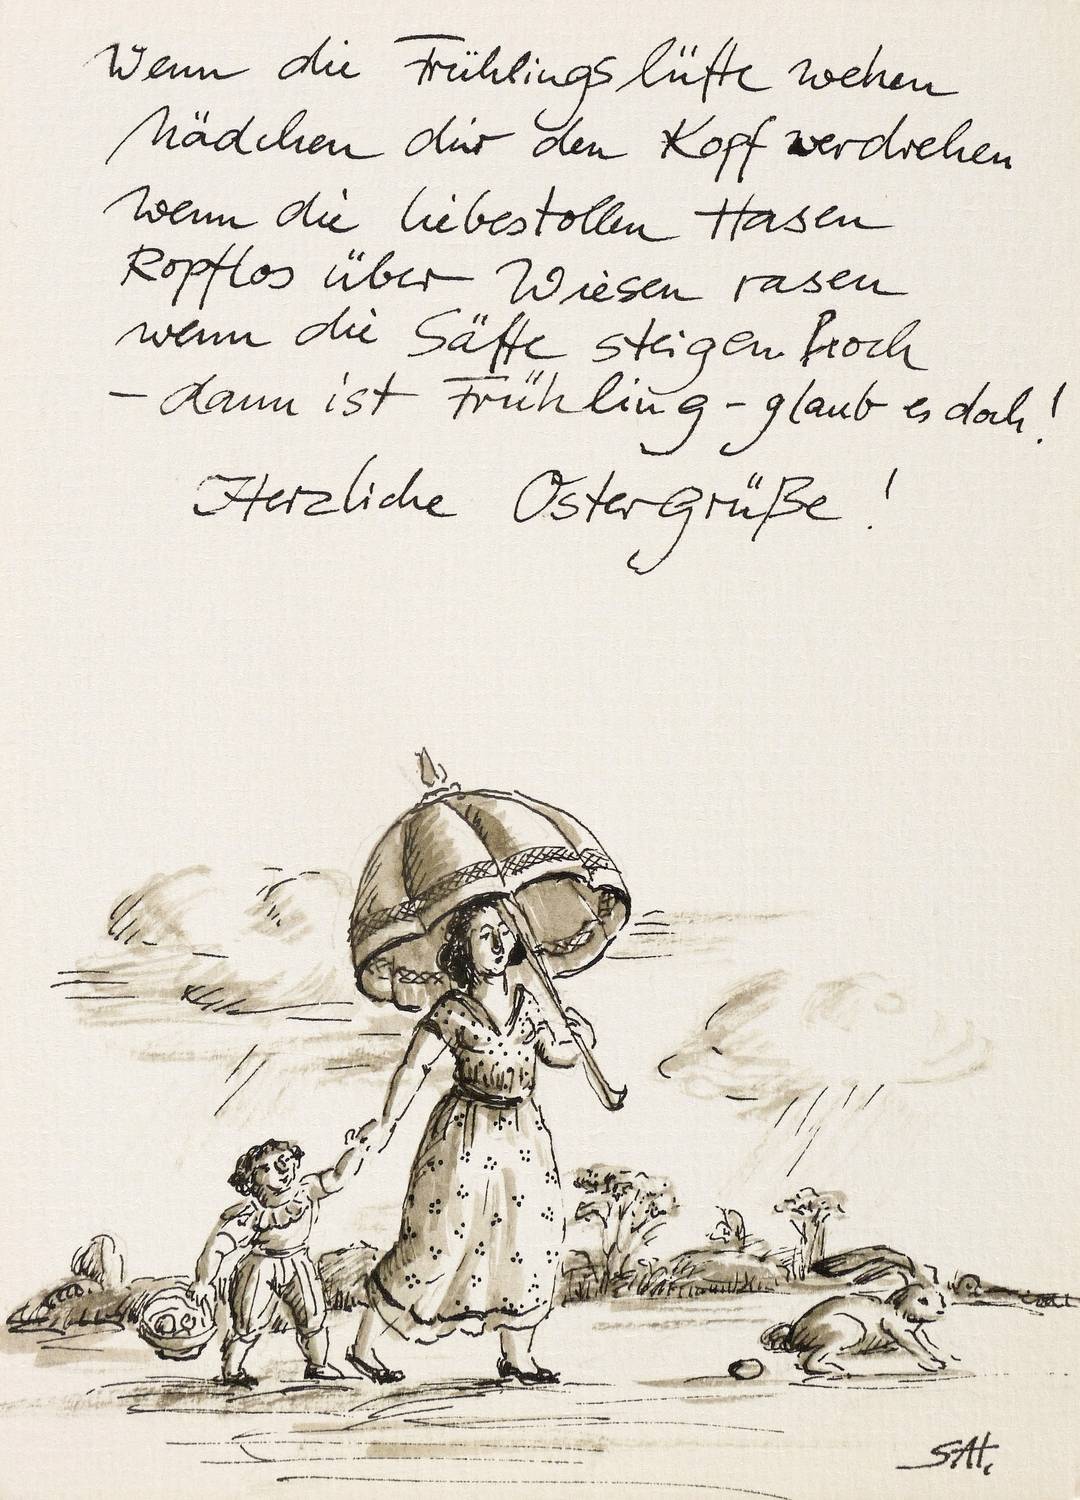 Wenn die Frühlingslüfte wehen
Mädchen dir den Kopf verdrehen
wenn die liebestollen Hasen
Kopflos über Wiesen rasen
wenn die Säfte steigen hoch
– dann ist Frühling – glaub es doch!
Herzliche Ostergrüße!